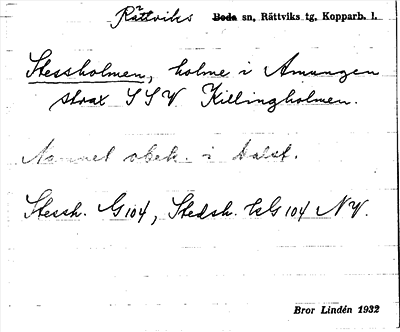 Rättviks Boda sn, Rättviks tg, Kopparb. l.
Stessholmen, holme i Amungen
strax SSV Killingholmen.
Namnet obek. i dalst.
Stessh. G 104, Stedsh. kG 104 NV.
Bror Lindén 1932